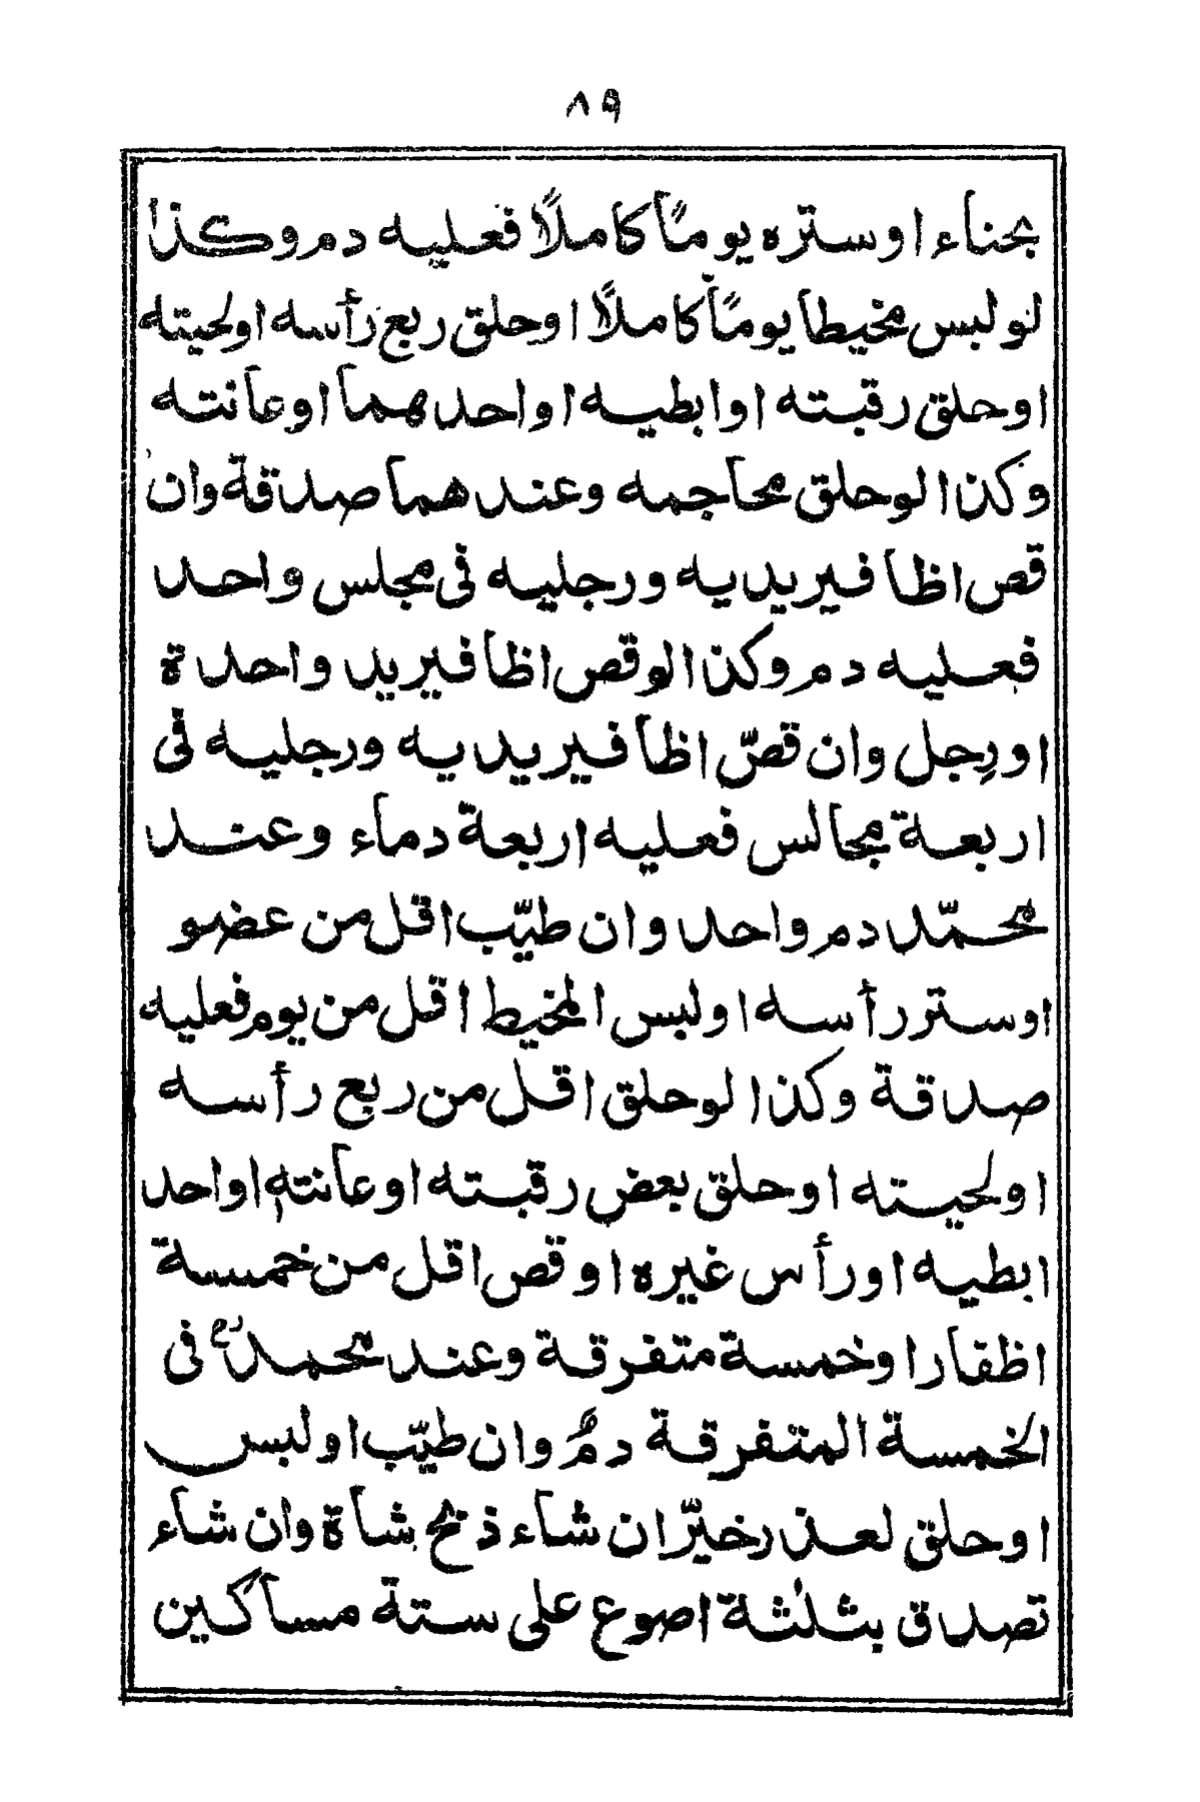 ٨٩
بحناء او ستره يوماً كاملاً فعليه دم وكذا
لو لبس مخيطا يوماً كاملاً او حلق ربع رأسه او لحيته
او حلق رقبته او ابطيه او احدهما او عانته
وكذا لو حلق محاجمه وعندهما صدقة وان
قص اظافير يديه ورجليه فى مجلس واحد
فعليه دم وكذا لو قص اظافير يد واحدة
او رِجل وان قصّ اظافير يديه ورجليه فى
اربعة مجالس فعليه اربعة دماء وعند
محمّد دم واحد وان طيّب اقل من عضو
او ستر رأسه او لبس المخيط اقل من يوم فعليه
صدقة وكذا لو حلق اقل من ربع رأسه
او لحيته او حلق بعض رقبته او عانته او احد
ابطيه او رأس غيره او قص اقل من خمسة
اظفار او خمسة متفرقة وعند محمد رح فى
الخمسة المتفرقة دمٌ وان طيّب او لبس
او حلق لعذر خيّر ان شاء ذبح شاة وان شاء
تصدق بثلثة اصوع على ستة مساكين